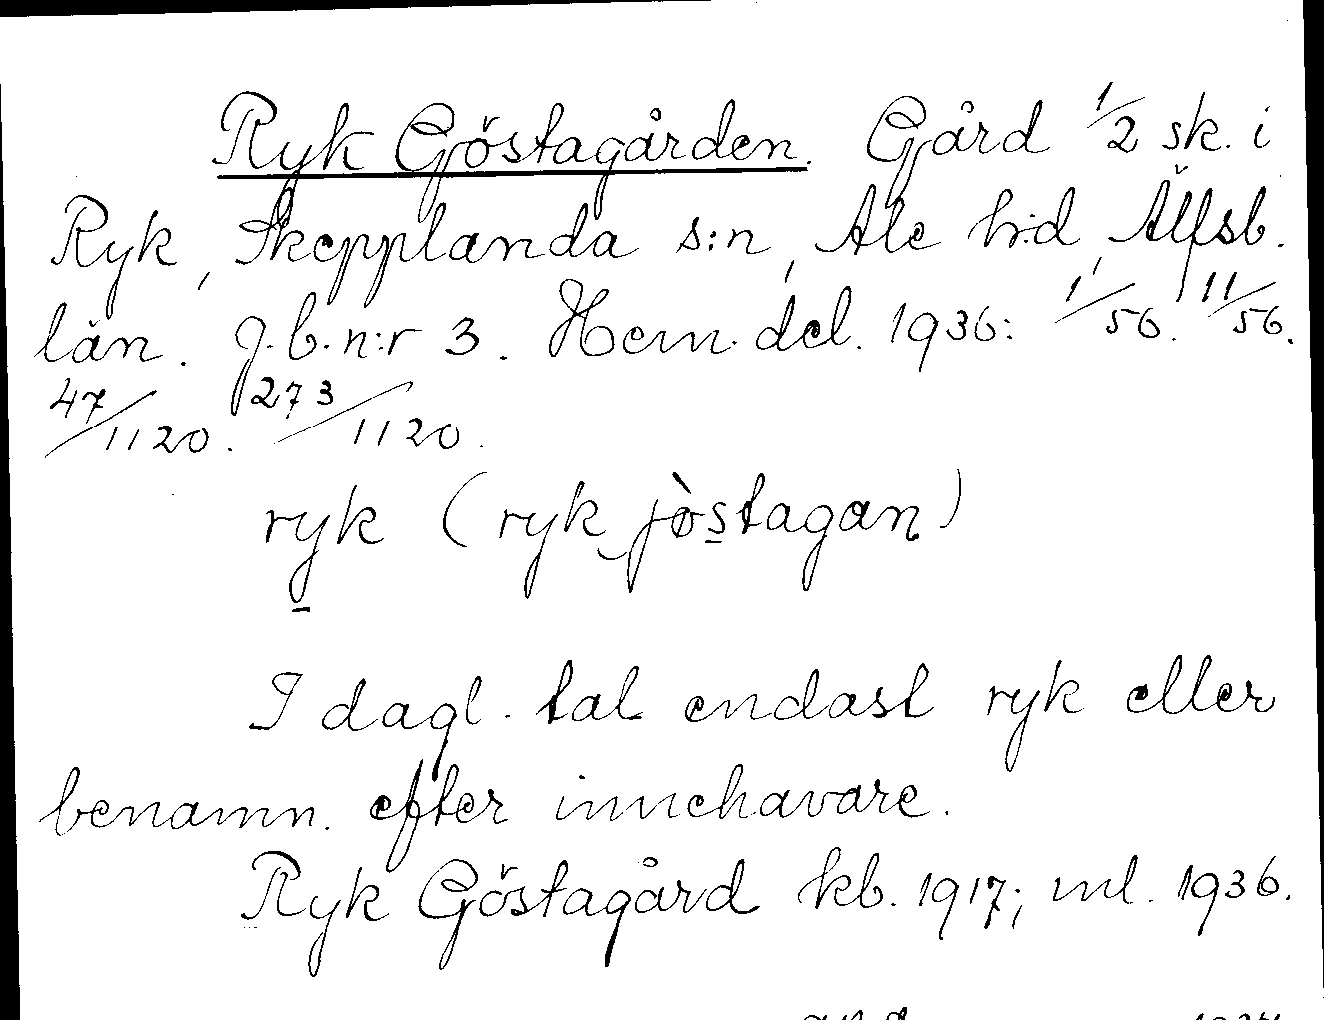 Ryk Göstagården. Gård 1/2 sk. i
Ryk, Skepplanda s:n, Ale h:d, Älfsb.
län. g.b.n:r 3. Hem. del. 1936: 1/56. 11/56.
47/1120. 273/1120.
ryk (ryk jòstagan)
I dagl. tal endast ryk eller
benämn. efter innehavare.
Ryk Göstagård kb. 1917; ml. 1936.